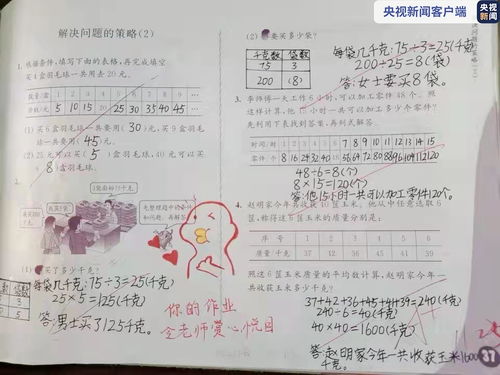 央视新闻客户端
解决问题的策略(2)
1. 根据条件,填写下面的表格,再完成填空。
买4盒羽毛球一共用去20元。
数量/盒 1 2 3 4 5 6 7 8 9
总价/元 5 10 15 20 25 30 35 40 45
(1) 买6盒羽毛球一共要用(30)元,买9盒羽毛球一共要用(45)元。
(2) 25元可以买(5)盒羽毛球,40元可以买(8)盒羽毛球。
2.
3袋装有75千克
先整理题中的条件和问题,再解答。
(1)
买了多少千克?
袋数
3
5
每袋几千克:75÷3=25(千克)
25×5=125(千克)
答:男士买了125千克。
你的作业
全老师爱心悦目
(2)
要买多少袋?
千克数 袋数
75 3
200 (8)
每袋几千克:75÷3=25(千克)
200÷25=8(袋)
答:女士要买8袋。
3. 李师傅一天工作6小时,可以加工零件48个。照这样计算,他15小时一共可以加工多少个零件?
先利用下表找到答案,再列式解答。
时间/时 1 2 3 4 5 6 7 8 9 10 11 12 13 14 15
零件/个 8 16 24 32 40 48 56 64 72 80 88 96 104 112 120
48÷6=8(个)
8×15=120(个)
答:他15小时一共可以加工零件120个。
4. 赵明家今年共收获了40筐玉米。他从中任意选取6筐,称得这6筐玉米的质量分别是:
序号 1 2 3 4 5 6
质量/千克 37 42 36 45 41 39
照这6筐玉米质量的平均数计算,赵明家今年一共收获玉米多少千克?
37+42+36+45+41+39=240(千克)
240÷6=40(千克)
40×40=1600(千克)
答:赵明家今年一共收获玉米1600千克。
37